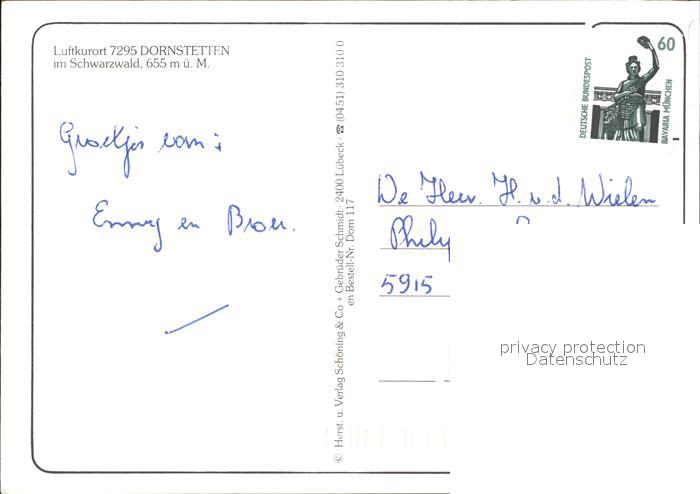 Luftkurort 7295 DORNSTETTEN
im Schwarzwald, 655 m ü. M.
Groetjes van:
Emmy en Broer.
© Herst. u. Verlag Schöning & Co + Gebrüder Schmidt · 2400 Lübeck · ☎ (0451) 310 310 0
en Bestell-Nr. Dorn 117
60
DEUTSCHE BUNDESPOST
BAVARIA MÜNCHEN
De Heer. H. v. d. Wielen
5915
privacy protection
Datenschutz